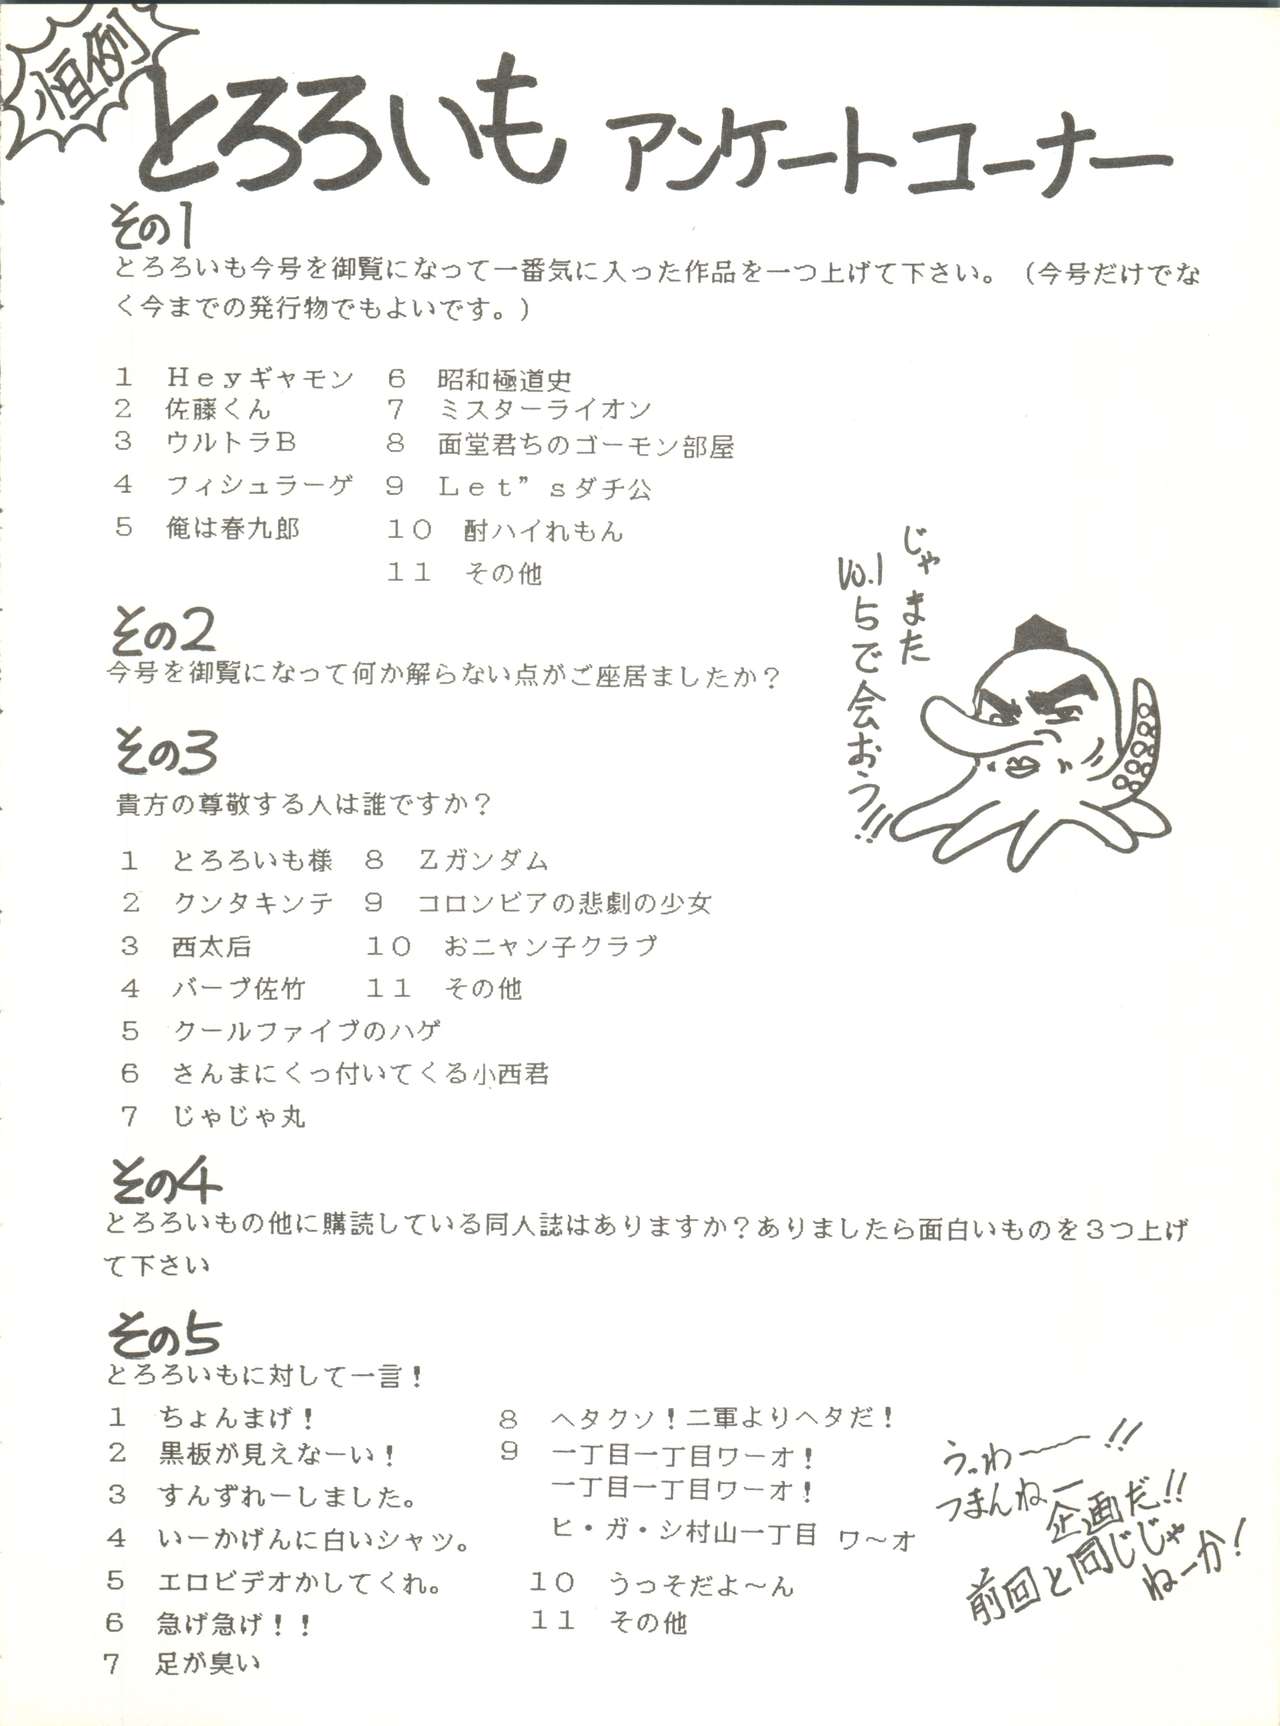 恒例
とろろいも アンケートコーナー
その1
とろろいも今号を御覧になって一番気に入った作品を一つ上げて下さい。(今号だけでな
く今までの発行物でもよいです。)
1 Heyギャモン
2 佐藤くん
3 ウルトラB
4 フィシュラーゲ
5 俺は春九郎
6 昭和極道史
7 ミスターライオン
8 面堂君ちのゴーモン部屋
9 Let”sダチ公
10 酎ハイれもん
11 その他
じゃまた
Vo.1
5で会おう!!
その2
今号を御覧になって何か解らない点がご座居ましたか?
その3
貴方の尊敬する人は誰ですか?
1 とろろいも様
2 クンタキンテ
3 西太后
4 バーブ佐竹
5 クールファイブのハゲ
6 さんまにくっ付いてくる小西君
7 じゃじゃ丸
8 Zガンダム
9 コロンビアの悲劇の少女
10 おニャン子クラブ
11 その他
その4
とろろいもの他に購読している同人誌はありますか?ありましたら面白いものを3つ上げ
て下さい
その5
とろろいもに対して一言!
1 ちょんまげ!
2 黒板が見えなーい!
3 すんずれーしました。
4 いーかげんに白いシャツ。
5 エロビデオかしてくれ。
6 急げ急げ!!
7 足が臭い
8 ヘタクソ!二軍よりヘタだ!
9 一丁目一丁目ワーオ!
一丁目一丁目ワーオ!
ヒ・ガ・シ村山一丁目 ワ〜オ
10 うっそだよ〜ん
11 その他
うっわ〜〜!!
つまんねー
企画だ!!
前回と同じじゃ
ねーか!